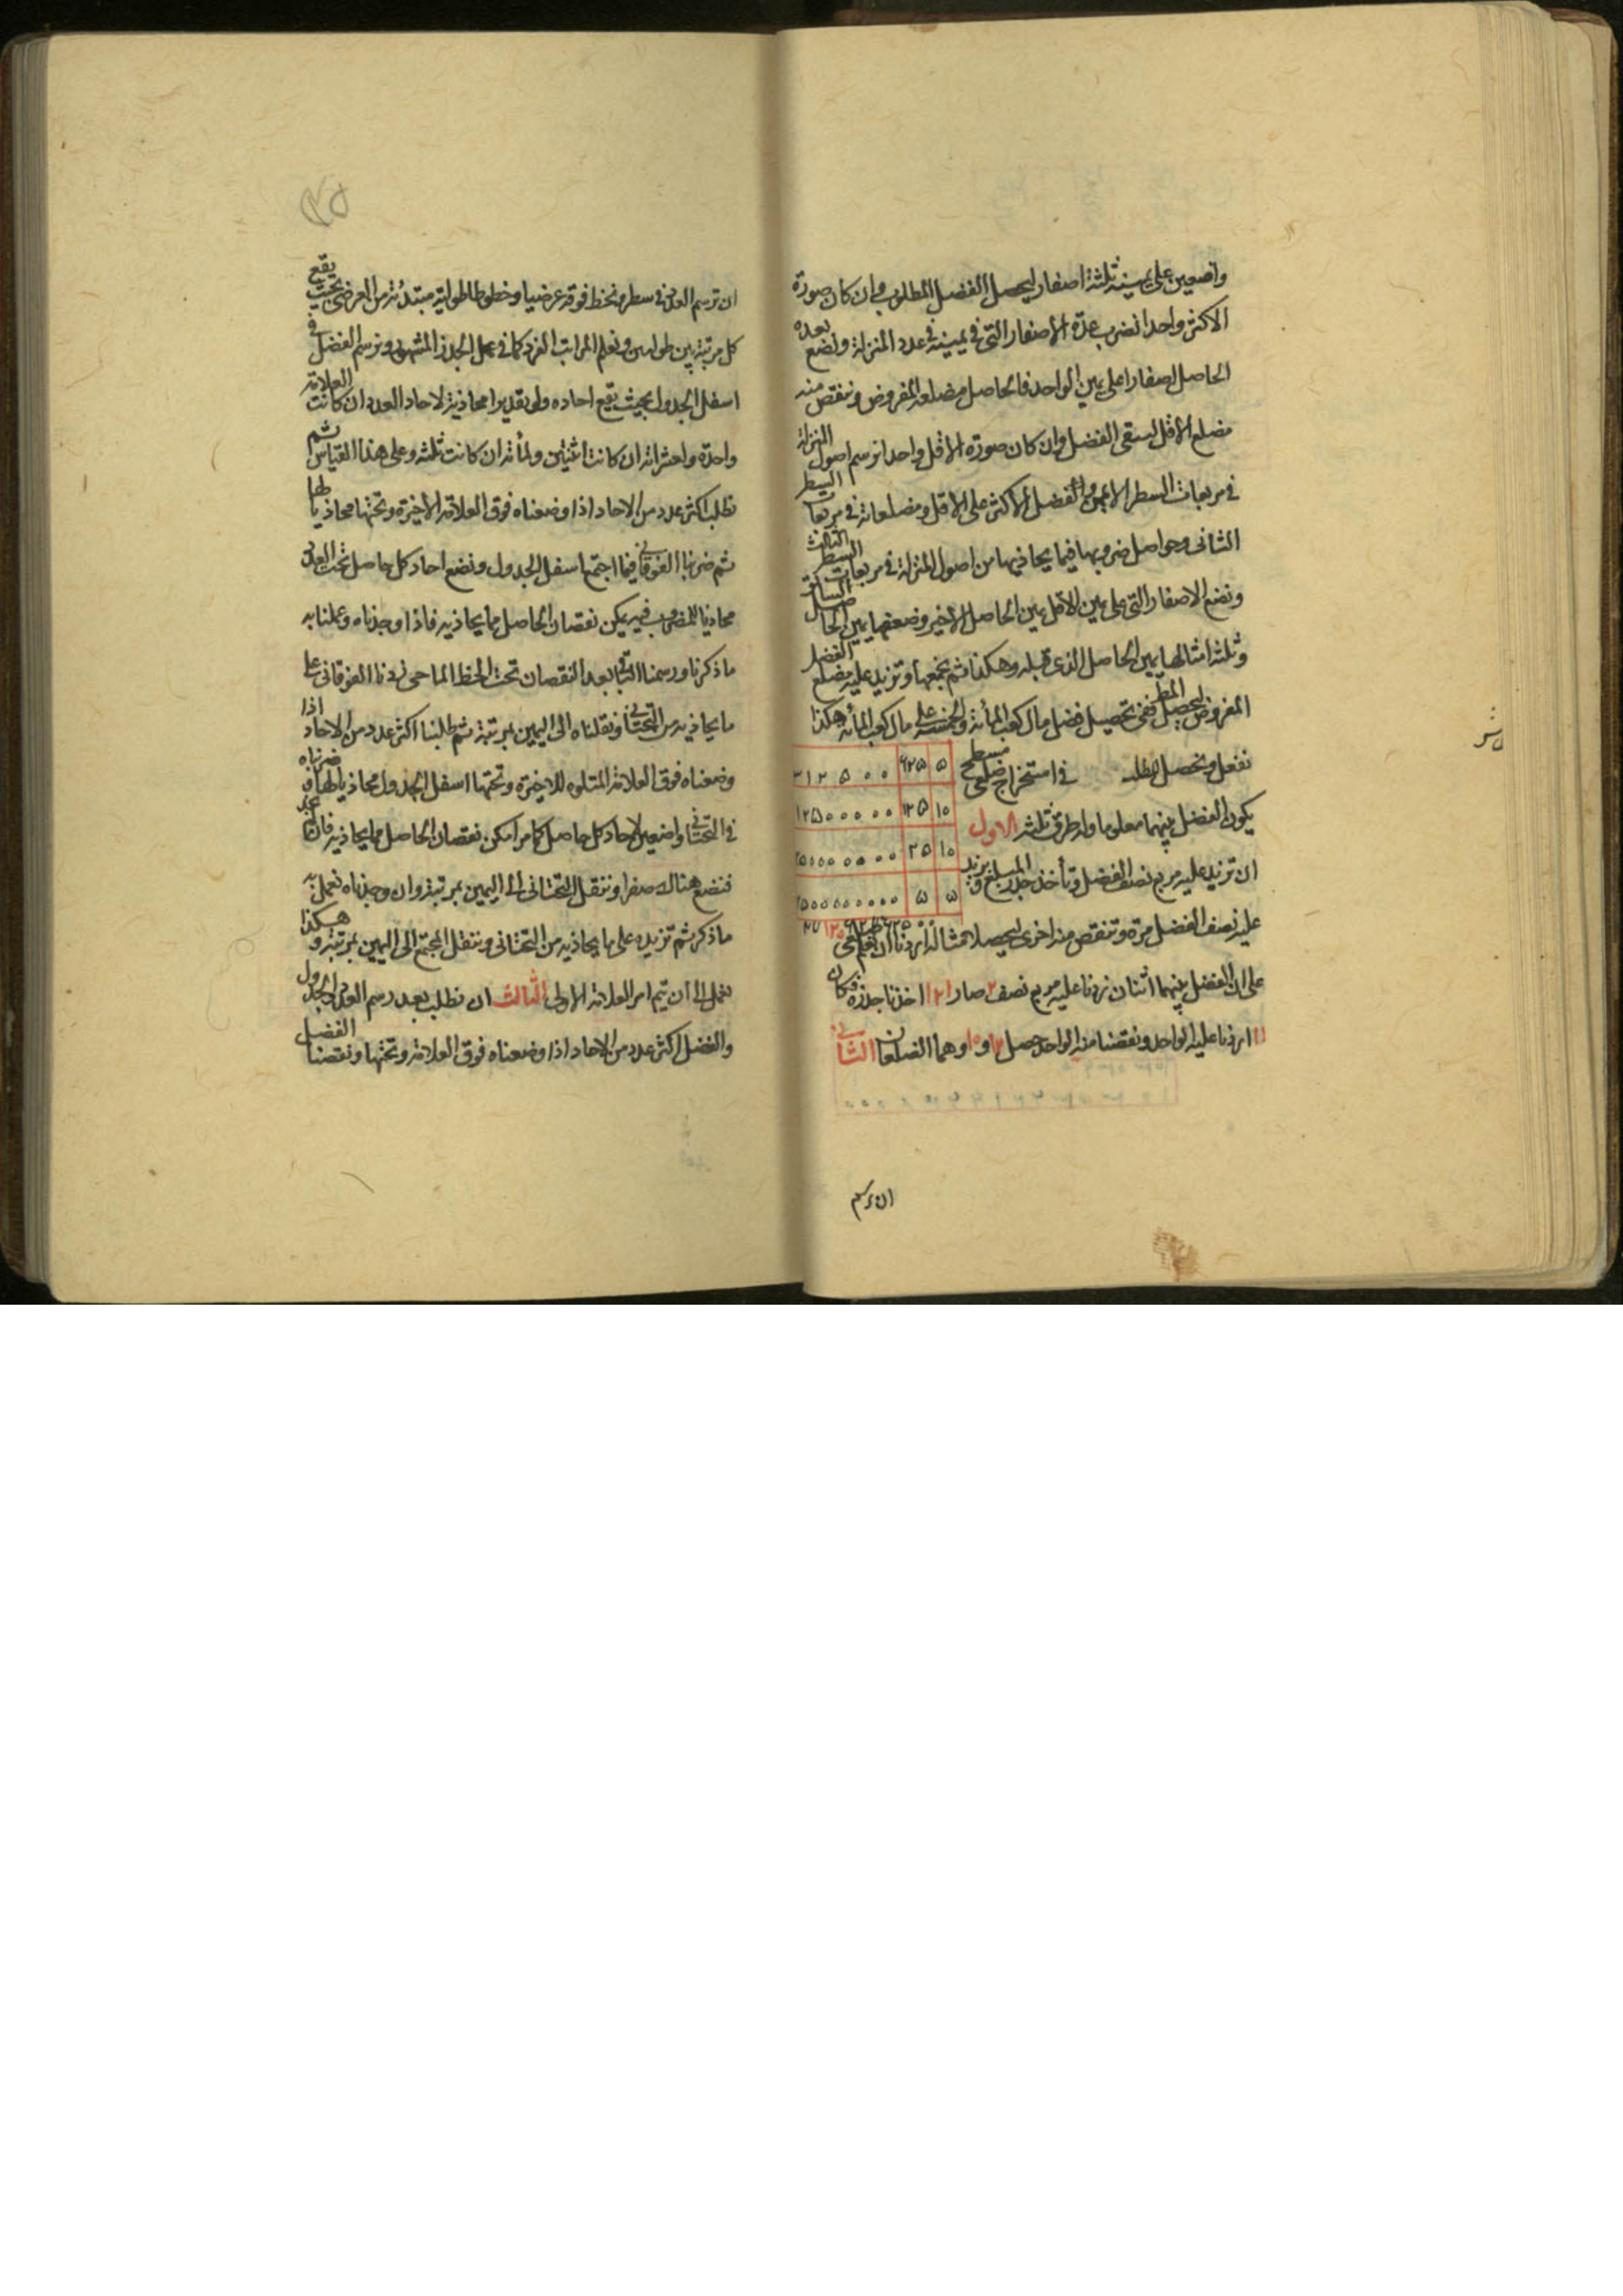 واضعين على يمينه ثلثة اصفار ليحصل الفضل المطلوب وان كان صورة
الاكثر واحدا نضرب عدة الاصفار التى فى يمينه فى عدد المنزلة ونضع بعده
الحاصل اصفارا على يمين الواحد فالحاصل مضلعه المفروض وننقص منه
مضلع الاقل ليبقى الفضل وان كان صورة الاقل واحدا نرسم اصول المنزلة
فى مربعات السطر الايمن والفضل الاكثر على الاقل ومضلعاته فى مربعات السطر
الثانى وحواصل ضروبها فيما يحاذيها من اصول المنزلة فى مربعات السطر الثالث
ونضع الاصفار التى على يمين الاقل يمين الحاصل الاخير وضعفها يمين الحاصل السابق
وثلثة امثالها يمين الحاصل الذى قبله وهكذا ثم نجمعها ونزيد عليه مضلع الفضل
المفروض ليحصل المط ففى تحصيل فضل مال كعب المأة والخمسة على مال كعب المأة هكذا
نفعل ويحصل المطلب فى استخراج ضلعى مسطح
۵ ۶۲۵ ۳۱۲۵۰۰
۱۰ ۱۲۵ ۱۲۵۰۰۰۰۰
۱۰ ۲۵
۵ ۵
يكون الفضل بينهما معلوما وله طرق ثلثة الاول
ان تزيد عليه مربع نصف الفضل وتأخذ جذر المبلغ وتزيد
عليه نصف الفضل مرة وتنقص منه اخرى ليحصلا مثاله اردنا ان نعلم ضلعى
على ان الفضل بينهما اثنان زدنا عليه مربع نصف ۲ صار ۱۲۱ اخذنا جذره وكان
۱۱ زدنا عليه الواحد ونقصنا منه الواحد حصل ۱۲ و۱۰ وهما الضلعان الثانى
ان نرسم
ان نرسم العدد فى سطر ونخط فوقه عرضيا وخطوطا طولية مبتدئة من العرضى بحيث يقع
كل مرتبة بين طوليين ونعلم المراتب الفرد كما فى عمل الجذر المشهور ونرسم الفضل فى
اسفل الجدول بحيث يقع احاده ولو تقديرا محاذية لاحاد العدد ان كانت العلامة
واحدة واعشراته ان كانت اثنتين ولمأته ان كانت ثلثة وعلى هذا القياس ثم
نطلب اكثر عدد من الاحاد اذا وضعناه فوق العلامة الاخيرة وتحتها محاذيا لها
ثم ضربنا الفوقانى فيما اجتمع اسفل الجدول ونضع احاد كل حاصل تحت العدد
محاذيا للمضروب فيه يمكن نقصان الحاصل مما يحاذيه فاذا وجدناه وعملنا به
ما ذكرنا ورسمنا الباقى بعد النقصان تحت الخط الماحى زدنا الفوقانى على
ما يحاذيه من التحتانى ونقلناه الى اليمين بمرتبة ثم طلبنا اكثر عدد من الاحاد اذا
وضعناه فوق العلامة المتلوه للاخيرة وتحتها اسفل الجدول محاذيا لها وضربناه
فى التحتانى واضعين لاحاد كل حاصل كما مر امكن نقصان الحاصل مما يحاذيه فان لم نجد
فنضع هناك صفرا وننقل التحتانى الى اليمين بمرتبة وان وجدناه نعمل به
ما ذكر ثم تزيده على ما يحاذيه من التحتانى وننقل المجتمع الى اليمين بمرتبة وهكذا
نعمل الى ان يتم امر العلامة الاولى الثالث ان نطلب بعد رسم العدد والجدول
والفضل اكثر عدد من الاحاد اذا وضعناه فوق العلامة وتحتها ونقصنا الفضل